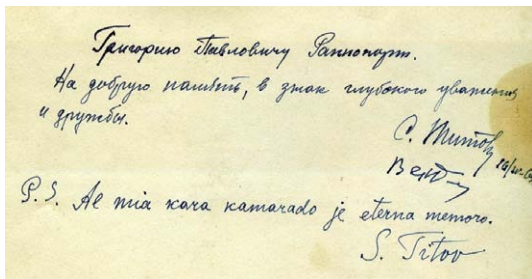 Григорию Павловичу Раппопорт.
На добрую память, в знак глубокого уважения
и дружбы.
С. Титов
P.S. Al mia kara kamarado je eterna memoro.
S. Titov